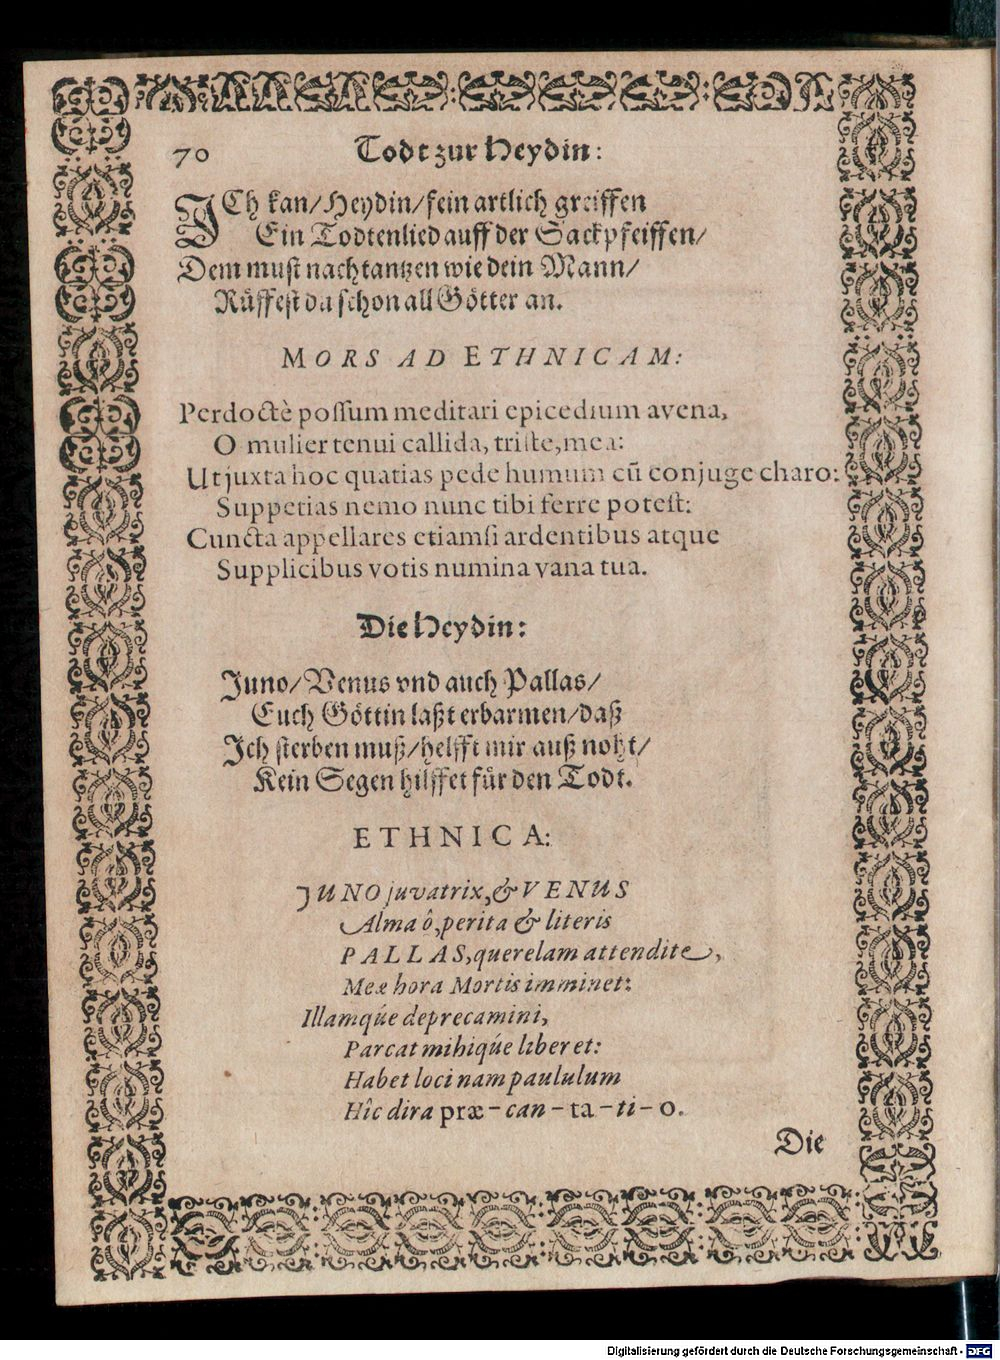 70 Todt zur Heydin:
ICh kan/Heydin/fein artlich greiffen
Ein Todtenlied auff der Sackpfeiffen/
Dem must nach tantzen wie dein Mann/
Rüffest du schon all Götter an.
MORS AD ETHNICAM:
Perdoctè possum meditari epicedium avena,
O mulier tenui callida, triste, mea:
Ut juxta hoc quatias pede humum cū conjuge charo:
Suppetias nemo nunc tibi ferre potest:
Cuncta appellares etiamsi ardentibus atque
Supplicibus votis numina vana tua.
Die Heydin:
Juno/Venus vnd auch Pallas/
Euch Göttin laßt erbarmen/daß
Ich sterben muß/helfft mir auß noht/
Kein Segen hilffet für den Todt.
ETHNICA:
JUNO juvatrix, & VENUS
Alma ô, perita & literis
PALLAS, querelam attendite,
Meæ hora Mortis imminet:
Illamqúe deprecamini,
Parcat mihiqúe liberet:
Habet loci nam paululum
Hîc dira præ-can-ta-ti-o.
Die
Digitalisierung gefördert durch die Deutsche Forschungsgemeinschaft - DFG